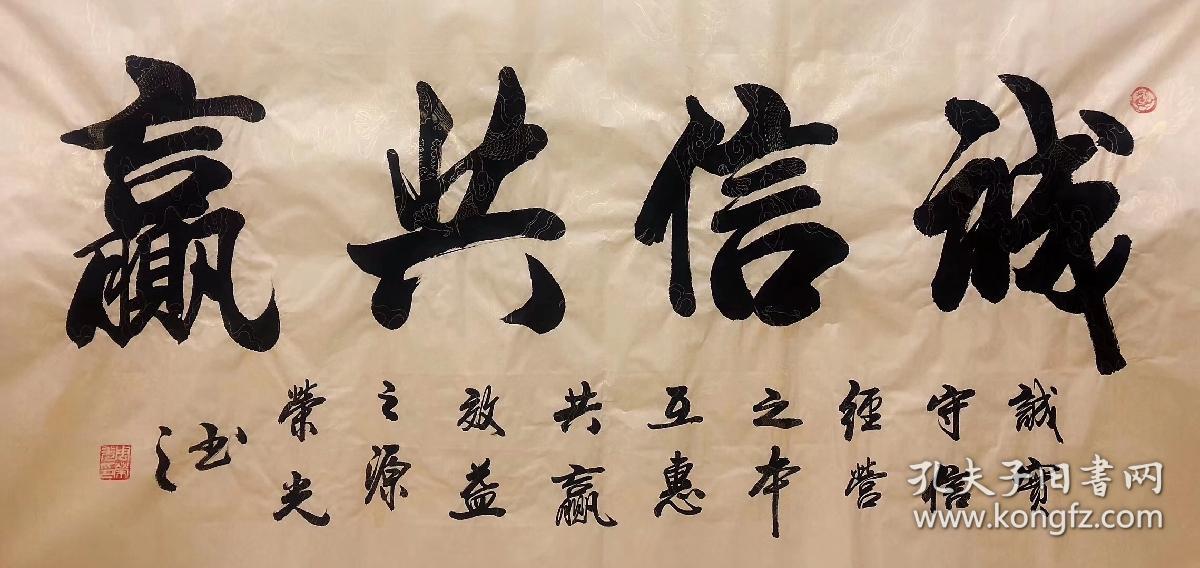 誠信共贏
誠實
守信
經營
之本
互惠
共贏
效益
之源
榮光
书之
孔夫子旧书网
www.kongfz.com